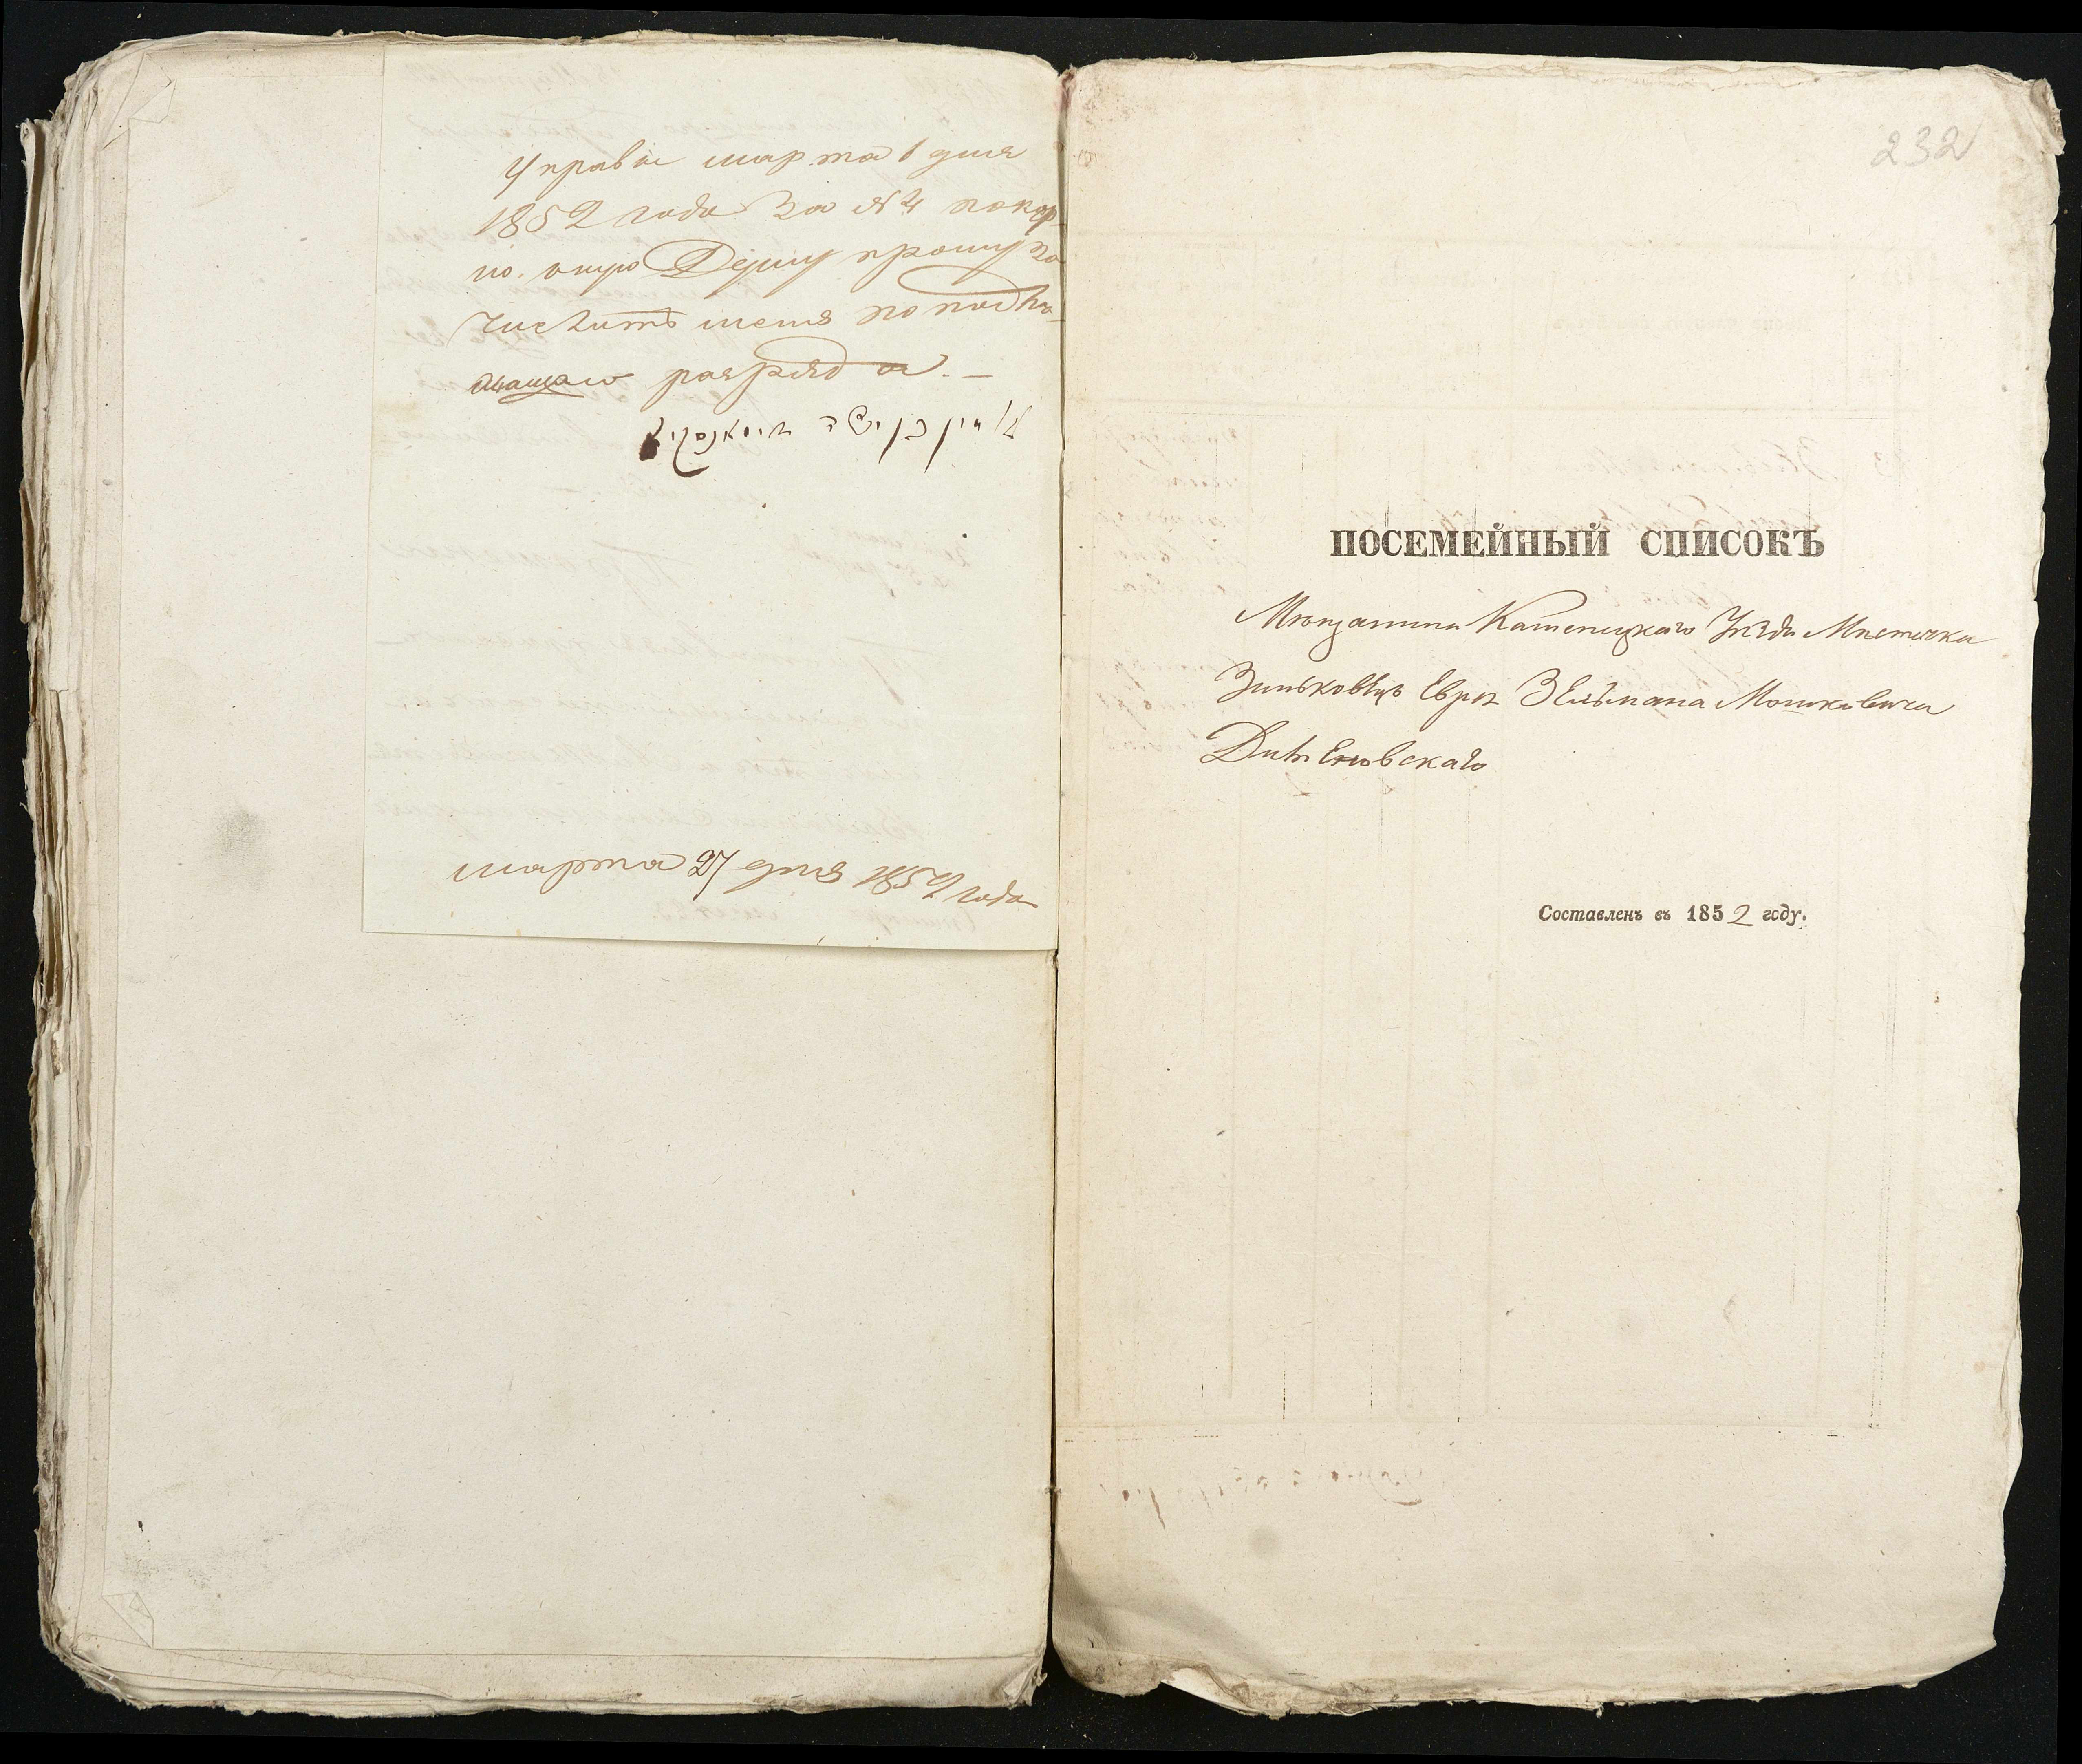 Управы марта 1 дня
1852 года За №4 покор-
но. оную Думу прошу по
числить меня по подло-
жащаго разряда. —
марта 27 дня 1852 года
232
ПОСЕМЕЙНЫЙ СПИСОКЪ
Мѣщанина Каменецкаго Уѣзда Мѣстечка
Зиньковецъ Еврея Зельмана Мошковича
Составленъ въ 1852 году.